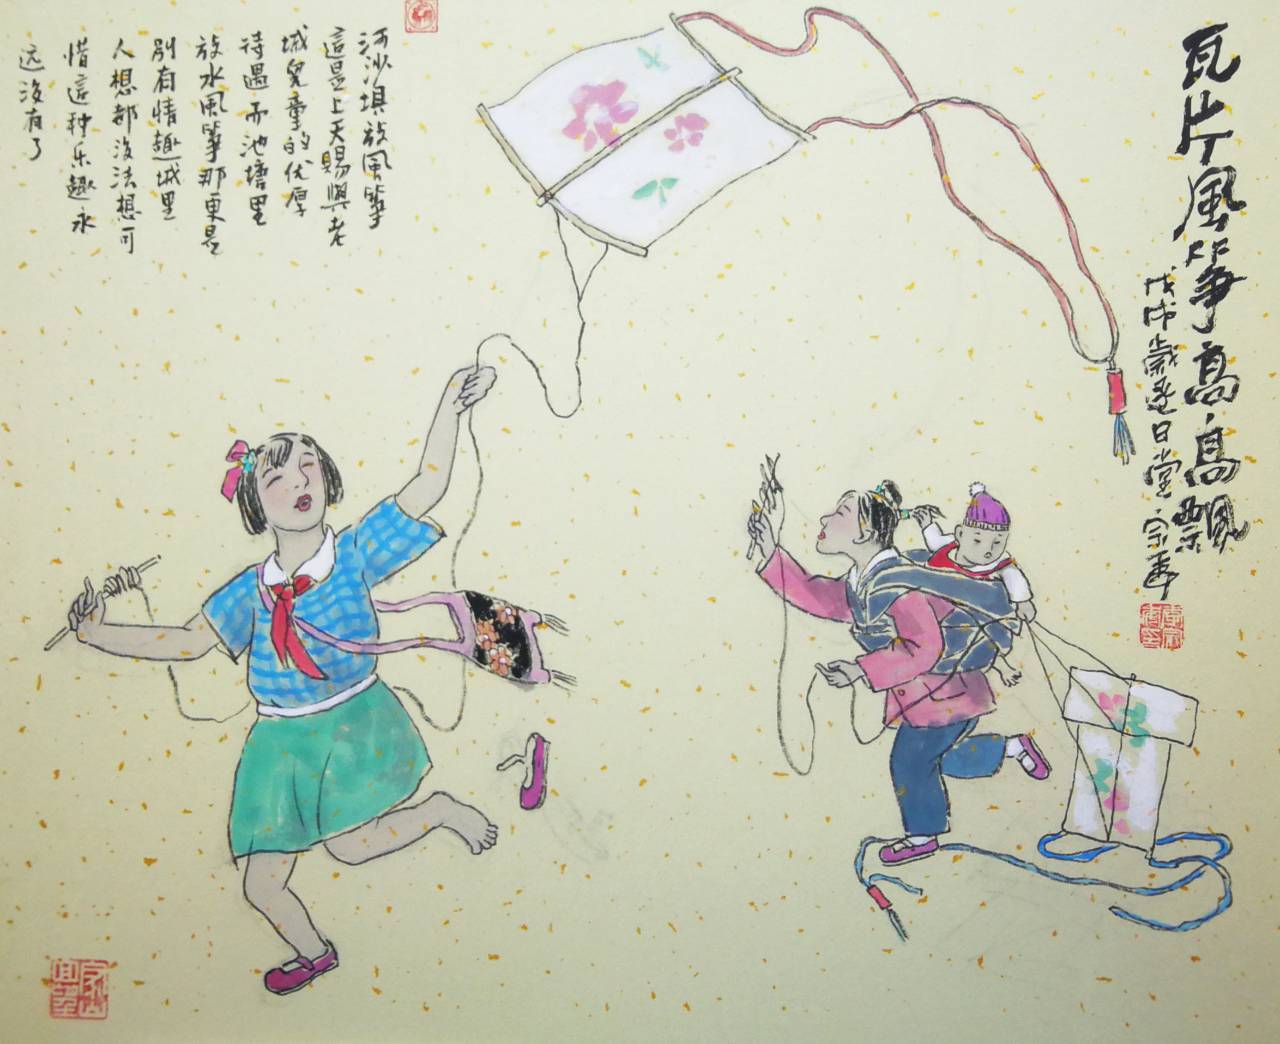 瓦片風筝髙髙飄
戊戌歲逐日堂
河沙埧放風筝
這是上天賜與老
城兒童的优厚
待遇而池塘里
放水風筝那更是
别有情趣城里
人想都没法想可
惜這种乐趣永
远没有了